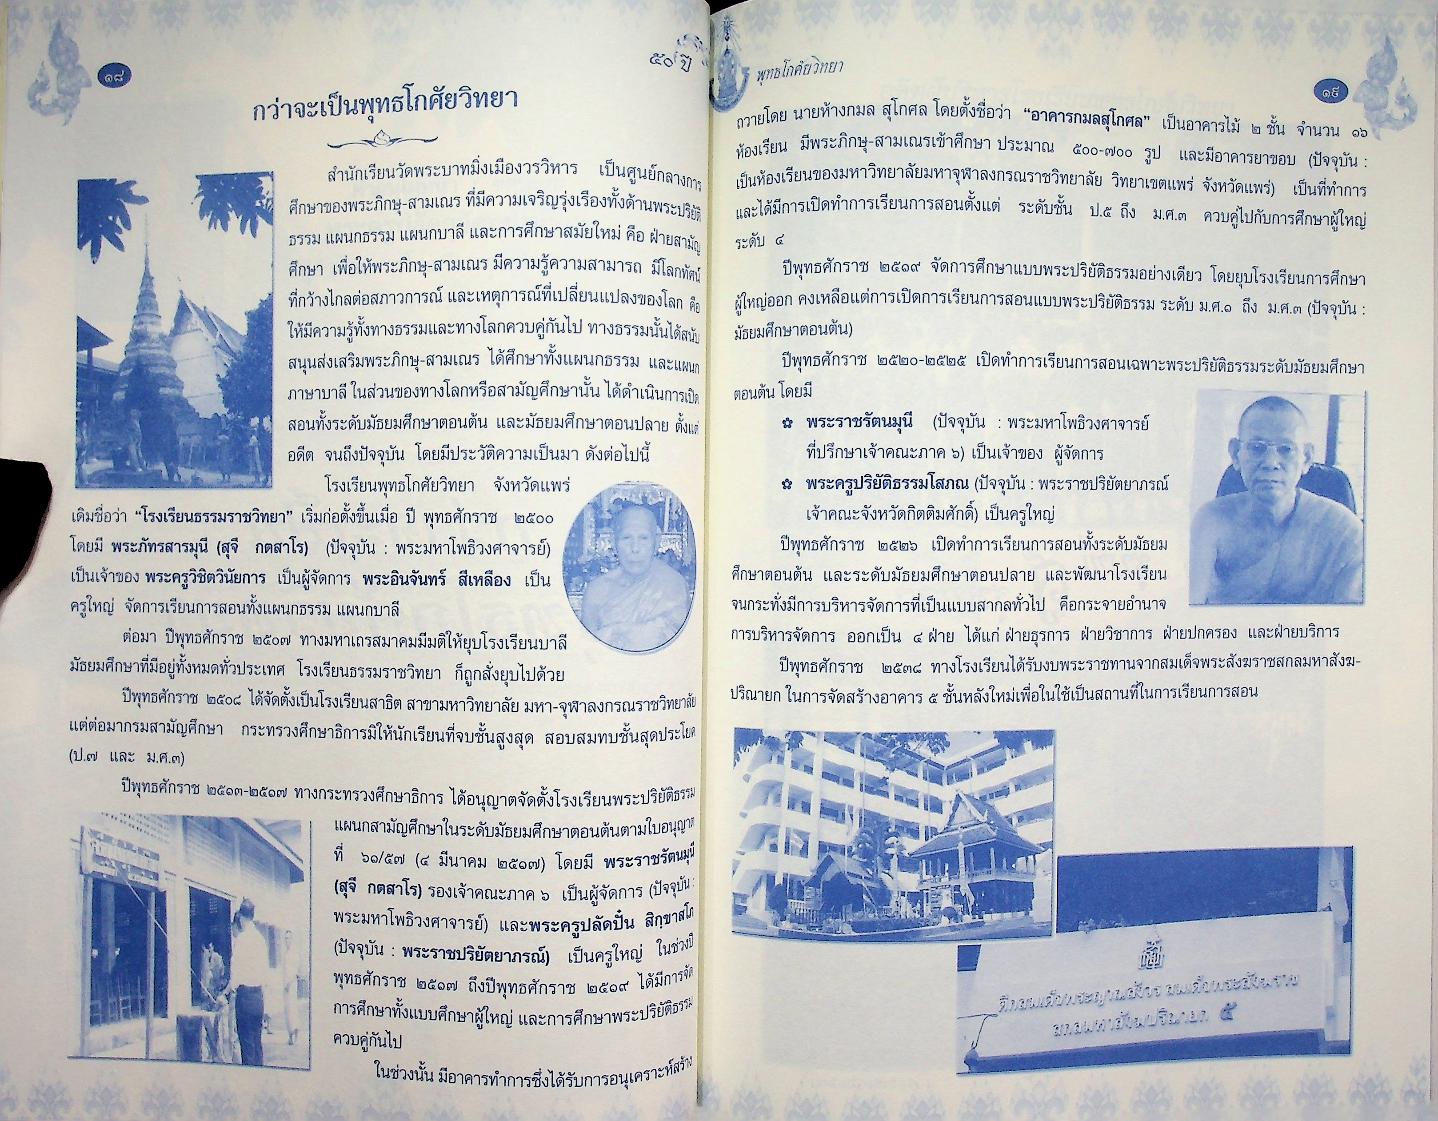 ๑๘
๕๐ ปี
กว่าจะเป็นพุทธโกศัยวิทยา
สำนักเรียนวัดพระบาทมิ่งเมืองวรวิหาร เป็นศูนย์กลางการ
ศึกษาของพระภิกษุ-สามเณร ที่มีความเจริญรุ่งเรืองทั้งด้านพระปริยัติ
ธรรม แผนกธรรม แผนกบาลี และการศึกษาสมัยใหม่ คือ ฝ่ายสามัญ
ศึกษา เพื่อให้พระภิกษุ-สามเณร มีความรู้ความสามารถ มีโลกทัศน์
ที่กว้างไกลต่อสภาวการณ์ และเหตุการณ์ที่เปลี่ยนแปลงของโลก คือ
ให้มีความรู้ทั้งทางธรรมและทางโลกควบคู่กันไป ทางธรรมนั้นได้สนับ
สนุนส่งเสริมพระภิกษุ-สามเณร ได้ศึกษาทั้งแผนกธรรม และแผนก
ภาษาบาลี ในส่วนของทางโลกหรือสามัญศึกษานั้น ได้ดำเนินการเปิด
สอนทั้งระดับมัธยมศึกษาตอนต้น และมัธยมศึกษาตอนปลาย ตั้งแต่
อดีต จนถึงปัจจุบัน โดยมีประวัติความเป็นมา ดังต่อไปนี้
โรงเรียนพุทธโกศัยวิทยา จังหวัดแพร่
เดิมชื่อว่า “โรงเรียนธรรมราชวิทยา” เริ่มก่อตั้งขึ้นเมื่อ ปี พุทธศักราช ๒๕๐๐
โดยมี พระภัทรสารมุนี (สุจี กตสาโร) (ปัจจุบัน : พระมหาโพธิวงศาจารย์)
เป็นเจ้าของ พระครูวิชิตวินัยการ เป็นผู้จัดการ พระอินจันทร์ สีเหลือง เป็น
ครูใหญ่ จัดการเรียนการสอนทั้งแผนกธรรม แผนกบาลี
ต่อมา ปีพุทธศักราช ๒๕๐๗ ทางมหาเถรสมาคมมีมติให้ยุบโรงเรียนบาลี
มัธยมศึกษาที่มีอยู่ทั้งหมดทั่วประเทศ โรงเรียนธรรมราชวิทยา ก็ถูกสั่งยุบไปด้วย
ปีพุทธศักราช ๒๕๐๘ ได้จัดตั้งเป็นโรงเรียนสาธิต สาขามหาวิทยาลัย มหา-จุฬาลงกรณราชวิทยาลัย
แต่ต่อมากรมสามัญศึกษา กระทรวงศึกษาธิการมิให้นักเรียนที่จบชั้นสูงสุด สอบสมทบชั้นสุดประโยค
(ป.๗ และ ม.ศ.๓)
ปีพุทธศักราช ๒๕๑๓-๒๕๑๗ ทางกระทรวงศึกษาธิการ ได้อนุญาตจัดตั้งโรงเรียนพระปริยัติธรรม
แผนกสามัญศึกษาในระดับมัธยมศึกษาตอนต้นตามใบอนุญาต
ที่ ๖๑/๕๗ (๔ มีนาคม ๒๕๑๗) โดยมี พระราชรัตนมุนี
(สุจี กตสาโร) รองเจ้าคณะภาค ๖ เป็นผู้จัดการ (ปัจจุบัน :
พระมหาโพธิวงศาจารย์) และพระครูปลัดปั๋น สิกขาสโภ
(ปัจจุบัน : พระราชปริยัตยาภรณ์) เป็นครูใหญ่ ในช่วงปี
พุทธศักราช ๒๕๑๗ ถึงปีพุทธศักราช ๒๕๑๙ ได้มีการจัด
การศึกษาทั้งแบบศึกษาผู้ใหญ่ และการศึกษาพระปริยัติธรรม
ควบคู่กันไป
ในช่วงนั้น มีอาคารทำการซึ่งได้รับการอนุเคราะห์สร้าง
พุทธโกศัยวิทยา
๑๙
ถวายโดย นายห้างกมล สุโกศล โดยตั้งชื่อว่า “อาคารกมลสุโกศล” เป็นอาคารไม้ ๒ ชั้น จำนวน ๑๖
ห้องเรียน มีพระภิกษุ-สามเณรเข้าศึกษา ประมาณ ๕๐๐-๗๐๐ รูป และมีอาคารยาขอบ (ปัจจุบัน :
เป็นห้องเรียนของมหาวิทยาลัยมหาจุฬาลงกรณราชวิทยาลัย วิทยาเขตแพร่ จังหวัดแพร่) เป็นที่ทำการ
และได้มีการเปิดทำการเรียนการสอนตั้งแต่ ระดับชั้น ป.๕ ถึง ม.ศ.๓ ควบคู่ไปกับการศึกษาผู้ใหญ่
ระดับ ๔
ปีพุทธศักราช ๒๕๑๙ จัดการศึกษาแบบพระปริยัติธรรมอย่างเดียว โดยยุบโรงเรียนการศึกษา
ผู้ใหญ่ออก คงเหลือแต่การเปิดการเรียนการสอนแบบพระปริยัติธรรม ระดับ ม.ศ.๑ ถึง ม.ศ.๓ (ปัจจุบัน :
มัธยมศึกษาตอนต้น)
ปีพุทธศักราช ๒๕๒๐-๒๕๒๕ เปิดทำการเรียนการสอนเฉพาะพระปริยัติธรรมระดับมัธยมศึกษา
ตอนต้น โดยมี
✿ พระราชรัตนมุนี (ปัจจุบัน : พระมหาโพธิวงศาจารย์
ที่ปรึกษาเจ้าคณะภาค ๖) เป็นเจ้าของ ผู้จัดการ
✿ พระครูปริยัติธรรมโสภณ (ปัจจุบัน : พระราชปริยัตยาภรณ์
เจ้าคณะจังหวัดกิตติมศักดิ์) เป็นครูใหญ่
ปีพุทธศักราช ๒๕๒๖ เปิดทำการเรียนการสอนทั้งระดับมัธยม
ศึกษาตอนต้น และระดับมัธยมศึกษาตอนปลาย และพัฒนาโรงเรียน
จนกระทั่งมีการบริหารจัดการที่เป็นแบบสากลทั่วไป คือกระจายอำนาจ
การบริหารจัดการ ออกเป็น ๔ ฝ่าย ได้แก่ ฝ่ายธุรการ ฝ่ายวิชาการ ฝ่ายปกครอง และฝ่ายบริการ
ปีพุทธศักราช ๒๕๓๘ ทางโรงเรียนได้รับงบพระราชทานจากสมเด็จพระสังฆราชสกลมหาสังฆ-
ปริณายก ในการจัดสร้างอาคาร ๕ ชั้นหลังใหม่เพื่อในใช้เป็นสถานที่ในการเรียนการสอน
ตึกสมเด็จพระญาณสังวร สมเด็จพระสังฆราช
สกลมหาสังฆปริณายก ๕